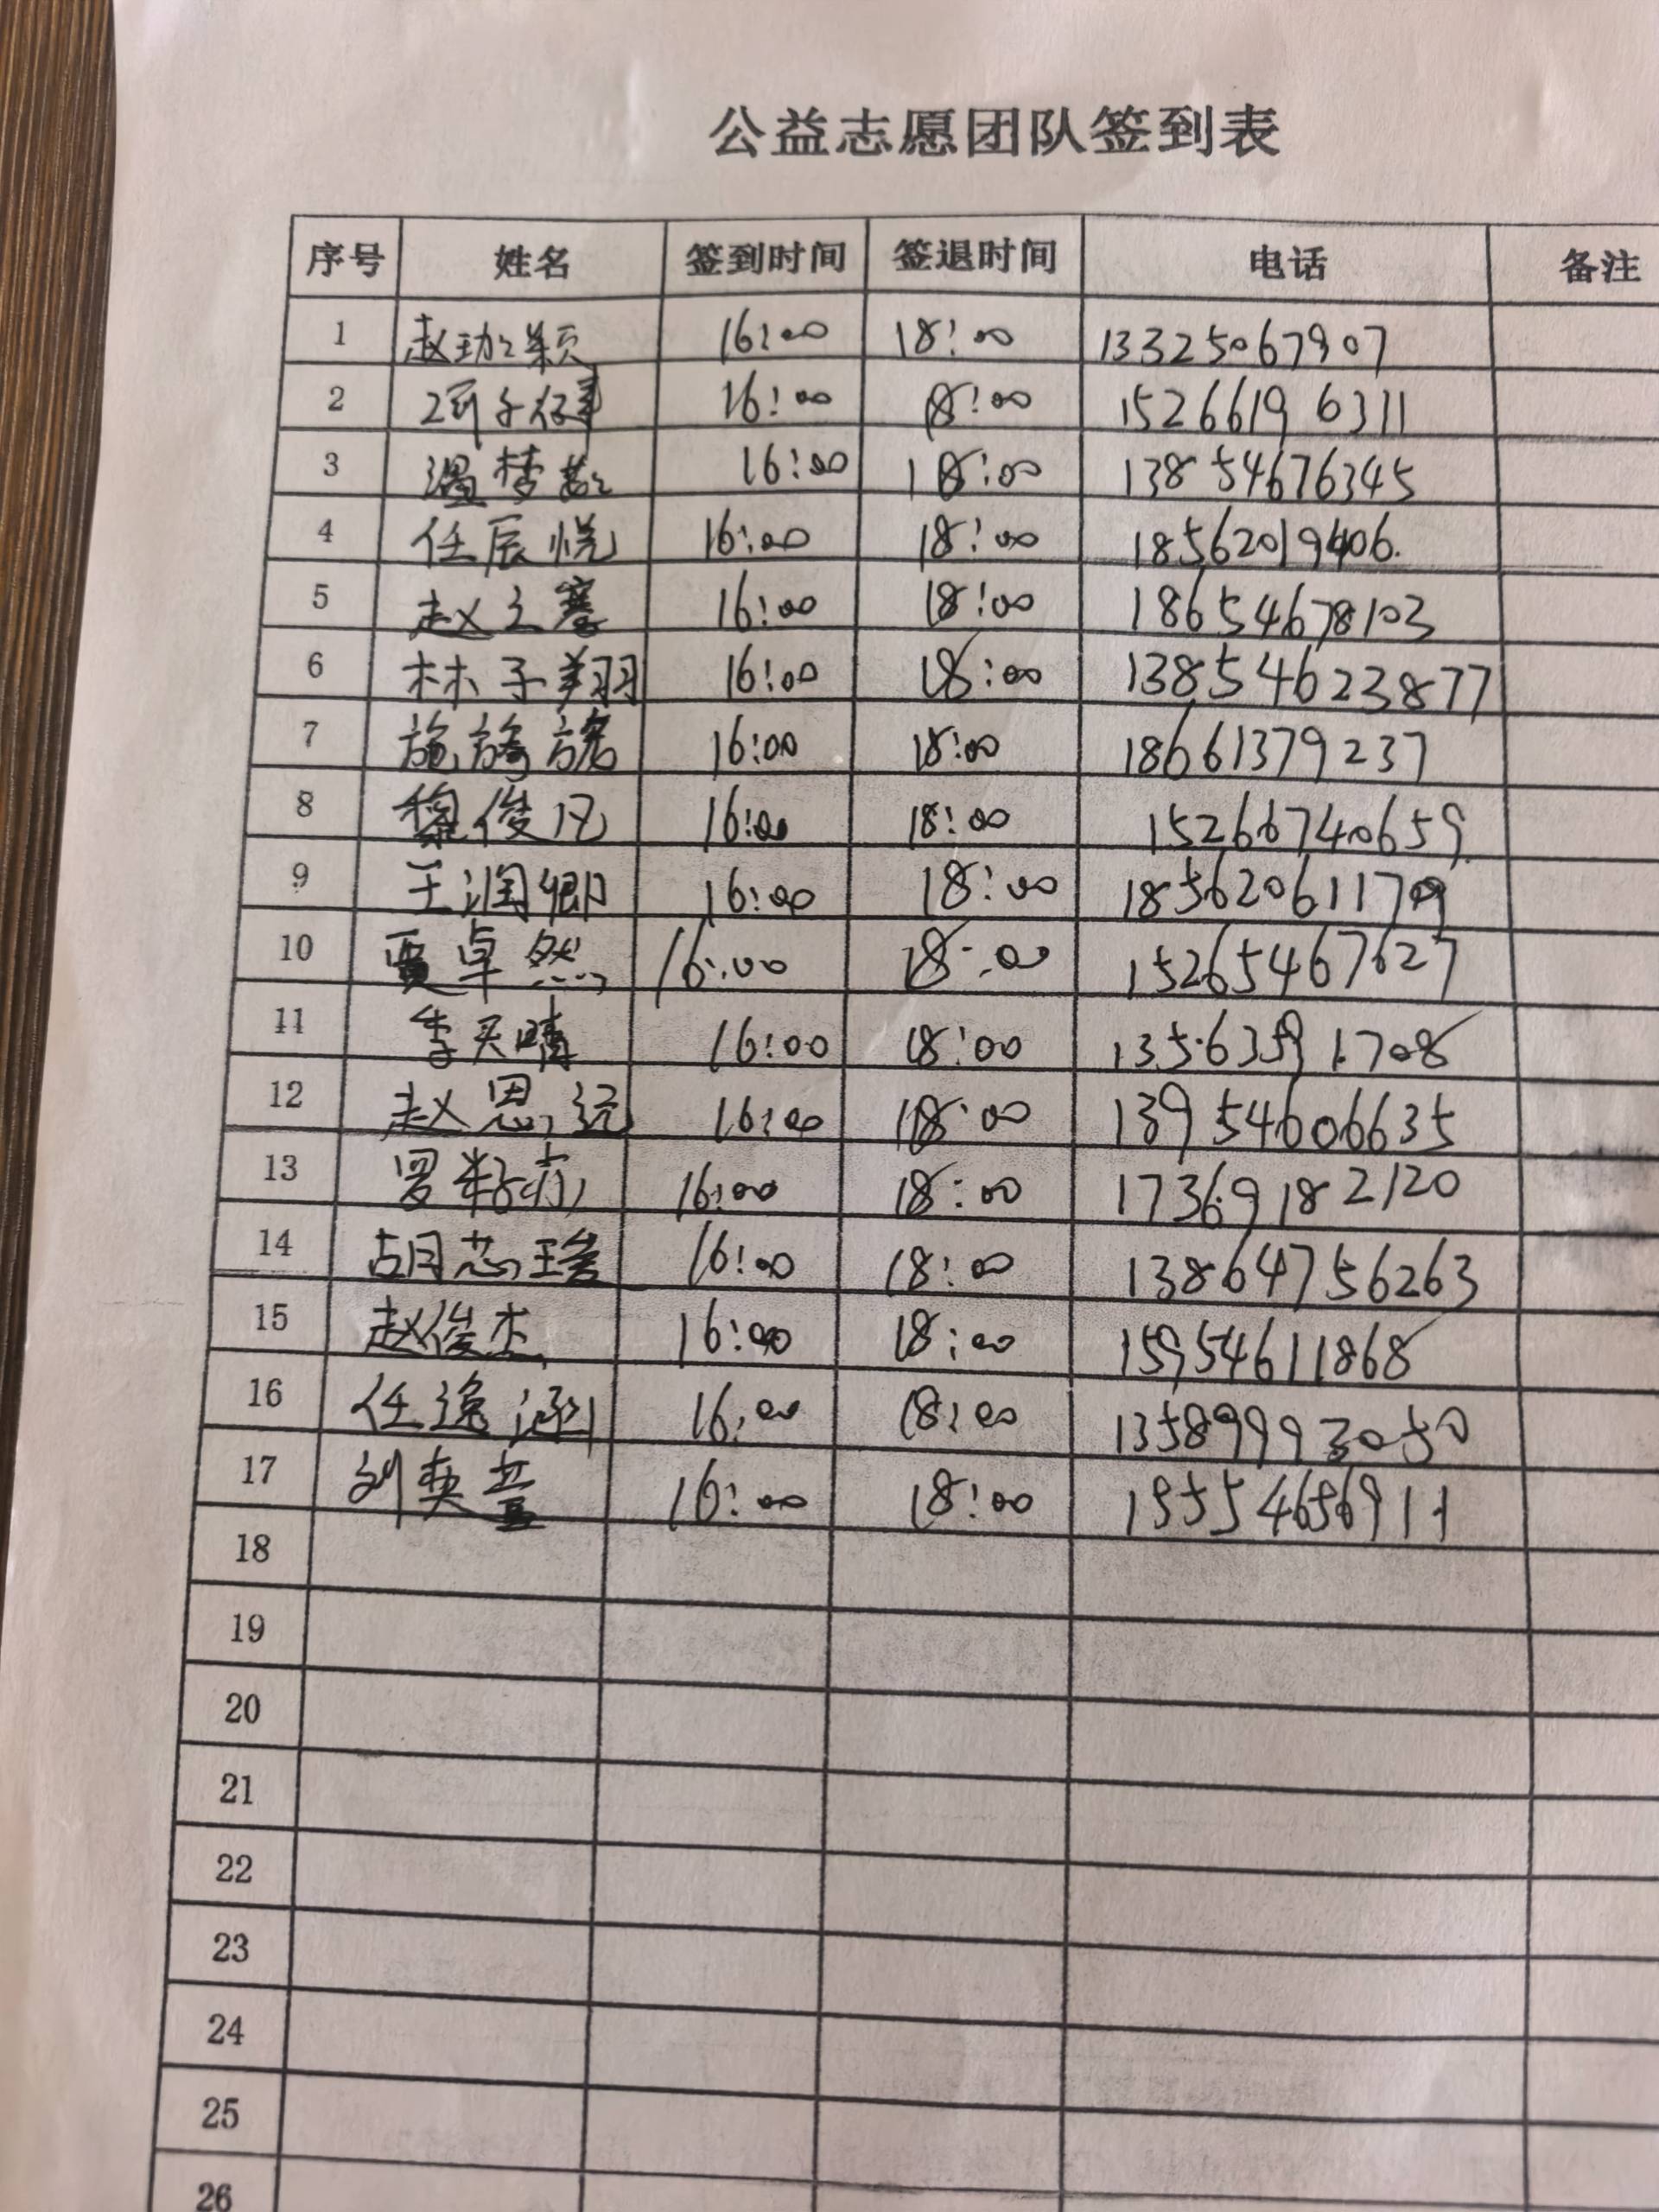 公益志愿团队签到表
序号 姓名 签到时间 签退时间 电话 备注
1 赵 颖 16:00 18:00 13325067907
2 子 16:00 18:00 15266196311
3 温梦 16:00 18:00 13854676345
4 任辰悦 16:00 18:00 18562019406.
5 赵 16:00 18:00 18654678103
6 林子翔 16:00 18:00 13854623877
7 施 16:00 18:00 18661379237
8 俊凡 16:00 18:00 15266740659
9 王润卿 16:00 18:00 18562061179
10 贾卓然 16:00 18:00 15265467627
11 李天晴 16:00 18:00 13563591708
12 赵恩远 16:00 18:00 13954606635
13 罗 16:00 18:00 17369182120
14 胡芯瑄 16:00 18:00 13864756263
15 赵俊杰 16:00 18:00 15954611868
16 任逸涵 16:00 18:00 13589993050
17 刘奕萱 16:00 18:00
18
19
20
21
22
23
24
25
26